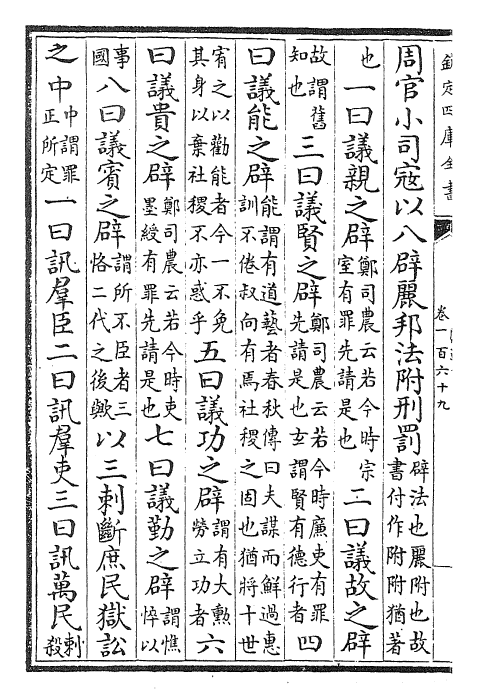 欽定四庫全書
卷一百六十九
周官小司寇以八辟麗邦法附刑罰辟法也麗附也故書付作附附猶著
也一曰議親之辟鄭司農云若今時宗室有罪先請是也二曰議故之辟
故謂舊知也三曰議賢之辟鄭司農云若今時廉吏有罪先請是也玄謂賢有德行者四
曰議能之辟能謂有道藝者春秋傳曰夫謀而鮮過惠訓不倦叔向有焉社稷之固也猶將十世
宥之以勸能者今一不免其身以棄社稷不亦惑乎五曰議功之辟謂有大勲勞立功者六
曰議貴之辟鄭司農云若今時吏墨綬有罪先請是也七曰議勤之辟謂憔悴以
事國八曰議賓之辟謂所不臣者三恪二代之後歟以三刺斷庶民獄訟
之中中謂罪正所定一曰訊羣臣二曰訊羣吏三曰訊萬民刺殺